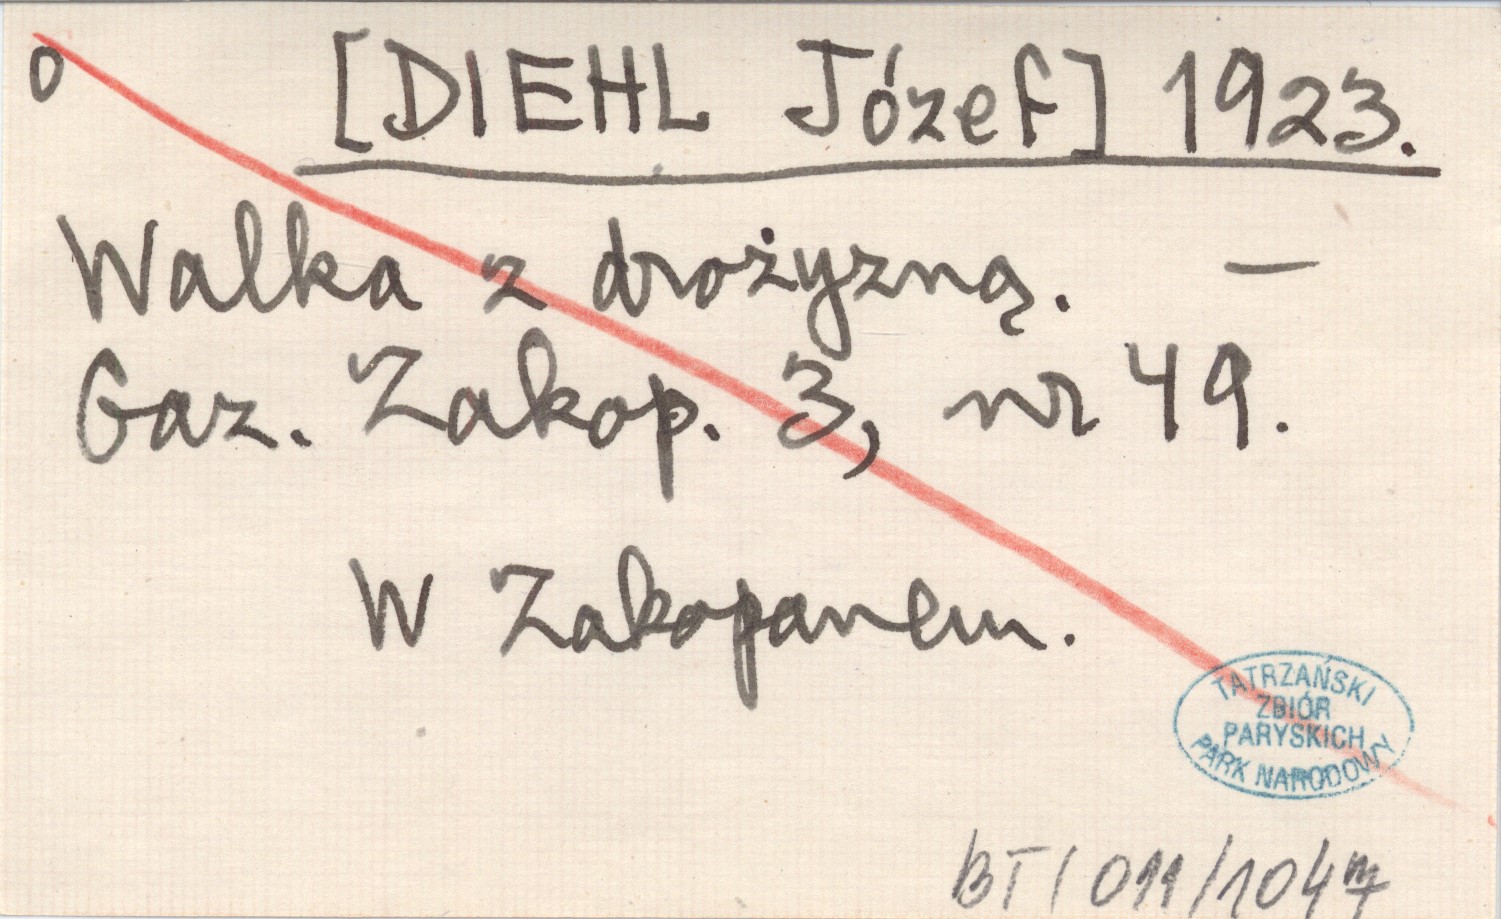 0 [DIEHL Józef] 1923.
Walka z drożyzną. —
Gaz. Zakop. 3, nr 49.
W Zakopanem.
TATRZAŃSKI
ZBIÓR
PARYSKICH
PARK NARODOWY
BT / 011/1047